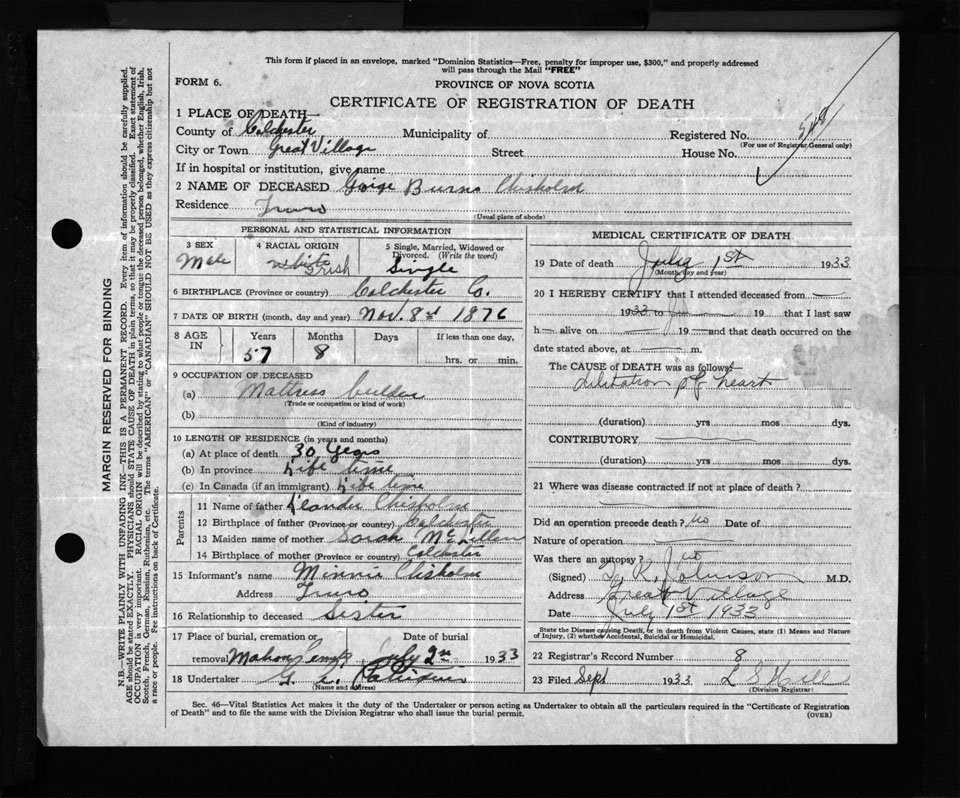 This form if placed in an envelope, marked "Dominion Statistics—Free, penalty for improper use, $300," and properly addressed
will pass through the Mail "FREE"
FORM 6.
PROVINCE OF NOVA SCOTIA
CERTIFICATE OF REGISTRATION OF DEATH
1 PLACE OF DEATH—
County of Colchester Municipality of Registered No. 548
(For use of Registrar General only)
City or Town Great Village Street House No.
If in hospital or institution, give name
2 NAME OF DECEASED George Burns Chisholm
Residence Truro
(Usual place of abode)
PERSONAL AND STATISTICAL INFORMATION
3 SEX Male
4 RACIAL ORIGIN white Irish
5 Single, Married, Widowed or Divorced. (Write the word) Single
6 BIRTHPLACE (Province or country) Colchester Co.
7 DATE OF BIRTH (month, day and year) Nov. 8 1876
8 AGE IN Years 57 Months 8 Days If less than one day, hrs. or min.
9 OCCUPATION OF DECEASED
(a) Mattress builder
(Trade or occupation or kind of work)
(b)
(Kind of industry)
10 LENGTH OF RESIDENCE (in years and months)
(a) At place of death 30 Years
(b) In province Life time
(c) In Canada (if an immigrant) Life time
Parents
11 Name of father Chisholm
12 Birthplace of father (Province or country) Colchester
13 Maiden name of mother Sarah
14 Birthplace of mother (Province or country) Colchester
15 Informant's name Minnie Chisholm
Address Truro
16 Relationship to deceased Sister
17 Place of burial, cremation or removal Date of burial July 2 1933
18 Undertaker G.
(Name and address)
MEDICAL CERTIFICATE OF DEATH
19 Date of death July 1st 1933
(Month, day and year)
20 I HEREBY CERTIFY that I attended deceased from
1933 to 19 that I last saw
h alive on 19 and that death occurred on
date stated above, at m.
The CAUSE of DEATH was as follows:
dilitation of heart
(duration) yrs mos dys.
CONTRIBUTORY
(duration) yrs mos dys.
21 Where was disease contracted if not at place of death?
Did an operation precede death? no Date of
Nature of operation
Was there an autopsy? no
(Signed) R. Johnson M.D.
Address Great Village
Date July 1st 1933
State the Disease causing Death, or in death from Violent Causes, state (1) Means and Nature
of Injury, (2) whether Accidental, Suicidal or Homicidal.
22 Registrar's Record Number 8
23 Filed Sept 1933 L S Hill
(Division Registrar)
Sec. 46—Vital Statistics Act makes it the duty of the Undertaker or person acting as Undertaker to obtain all the particulars required in the "Certificate of Registration
of Death" and to file the same with the Division Registrar who shall issue the burial permit.
(OVER)
MARGIN RESERVED FOR BINDING
N.B.—WRITE PLAINLY WITH UNFADING INK—THIS IS A PERMANENT RECORD. Every item of information should be carefully supplied.
AGE should be stated EXACTLY. PHYSICIANS should STATE CAUSE OF DEATH in plain terms, so that it may be properly classified. Exact statement of
OCCUPATION is very important. RACIAL ORIGIN will be described by stating to what people or tongue the deceased person belonged, whether English, Irish,
Scotch, French, German, Russian, Ruthenian, etc. The terms "AMERICAN" or "CANADIAN" SHOULD NOT BE USED as they express citizenship but not
a race or people. Fee instructions on back of Certificate.